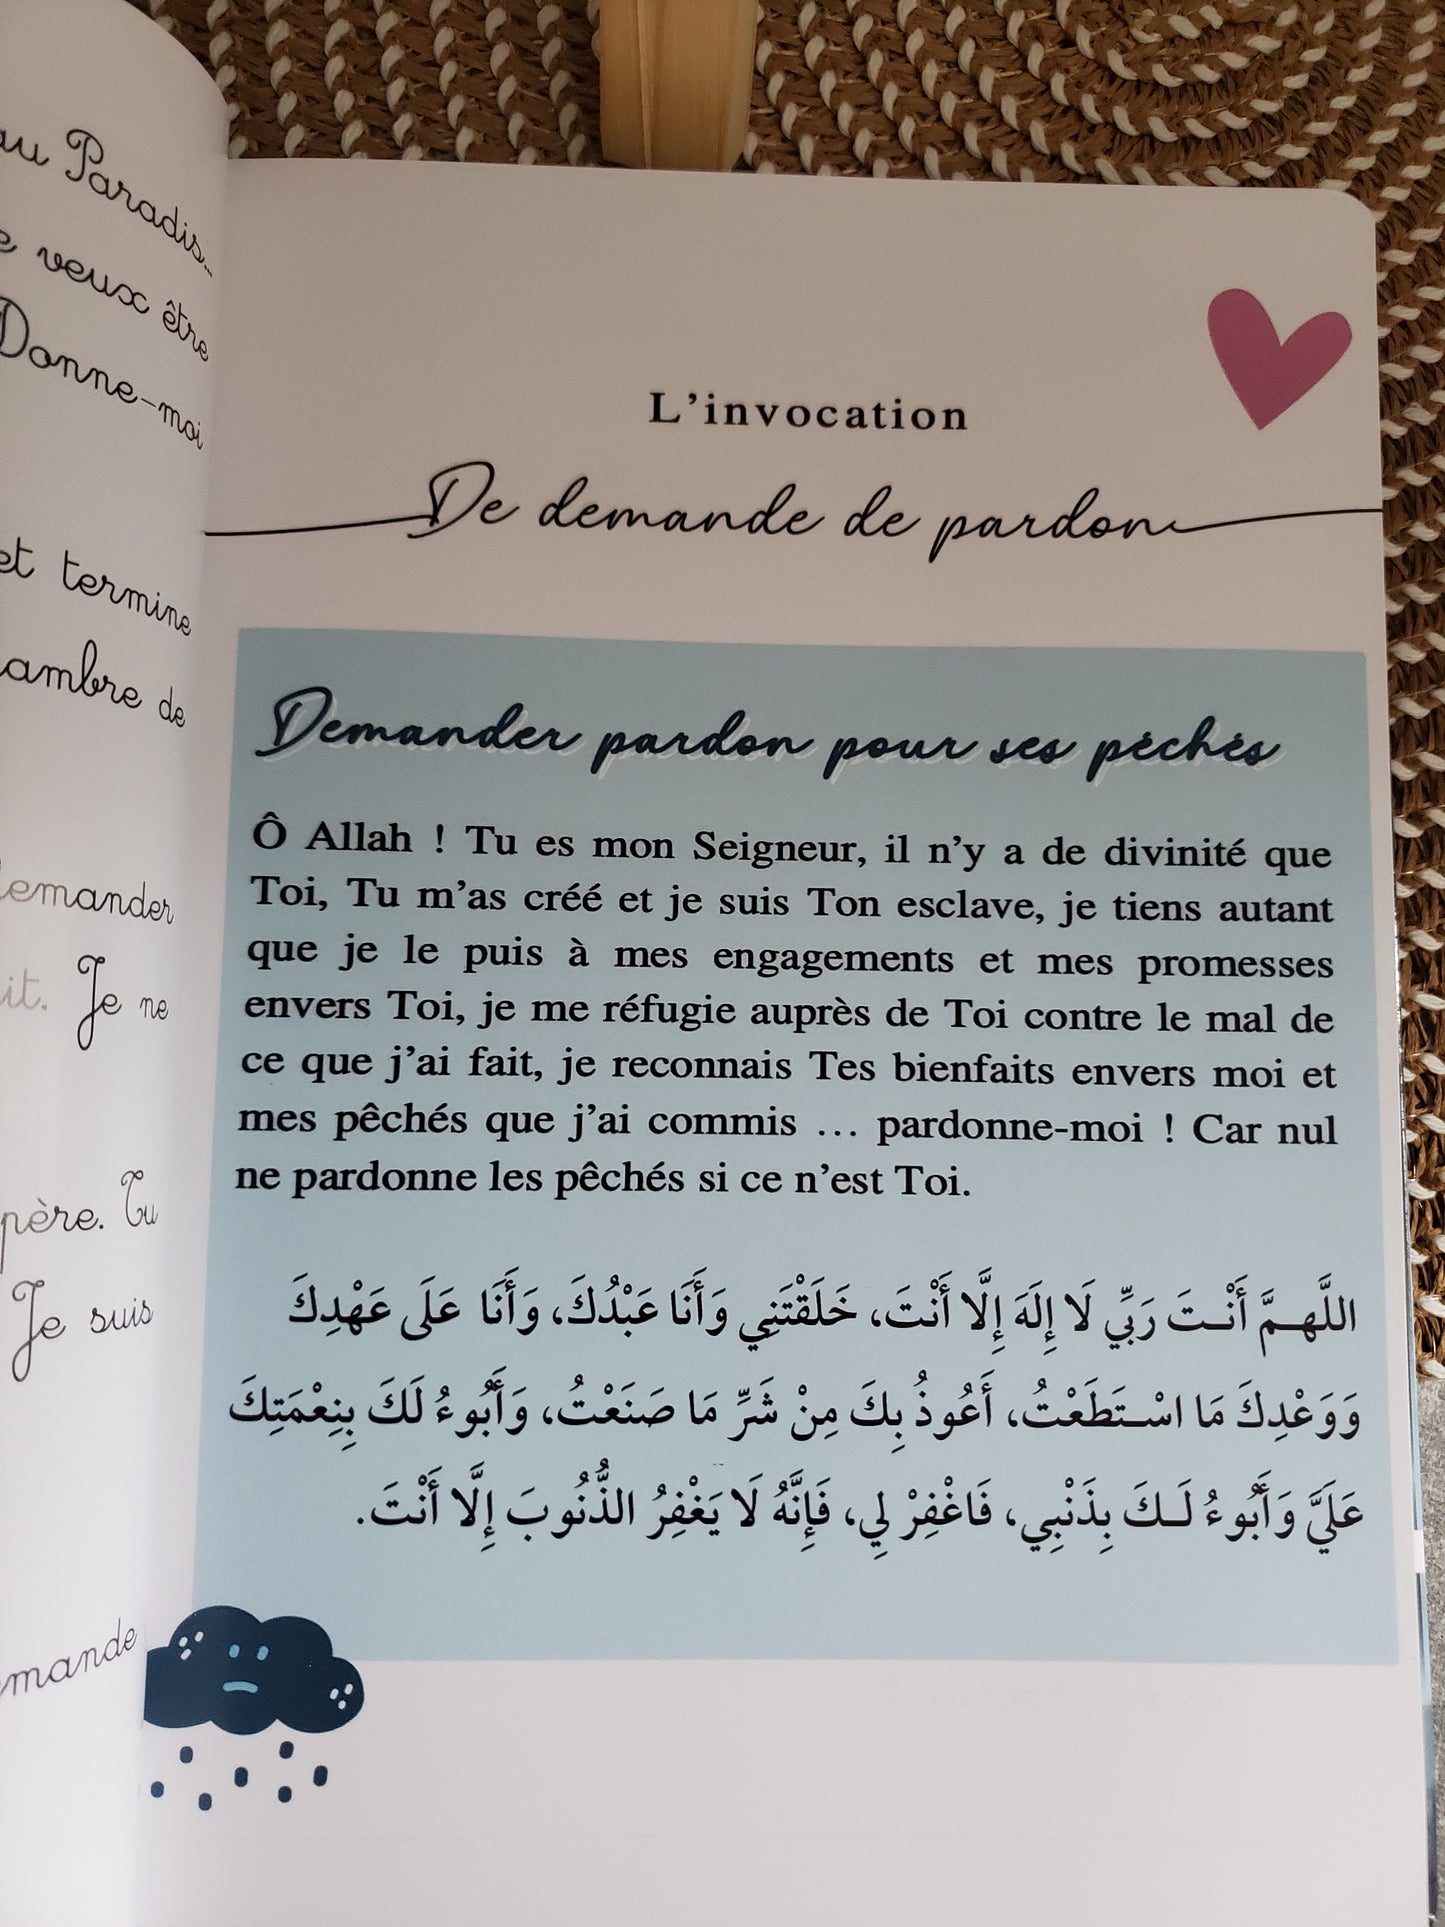 au Paradis...
veux être
Donne-moi
et termine
de
demander
Je ne
père. Tu
Je suis
L'invocation
De demande de pardon
Demander pardon pour ses péchés
Ô Allah ! Tu es mon Seigneur, il n'y a de divinité que
Toi, Tu m'as créé et je suis Ton esclave, je tiens autant
que je le puis à mes engagements et mes promesses
envers Toi, je me réfugie auprès de Toi contre le mal de
ce que j'ai fait, je reconnais Tes bienfaits envers moi et
mes pêchés que j'ai commis … pardonne-moi ! Car nul
ne pardonne les pêchés si ce n'est Toi.
اللَّهـمَّ أَنْـتَ رَبِّي لَا إِلَهَ إِلَّا أَنْتَ، خَلَقْتَنِي وَأَنَا عَبْدُكَ، وَأَنَا عَلَى عَهْدِكَ
وَوَعْدِكَ مَا اسْـتَطَعْتُ، أَعُوذُ بِكَ مِنْ شَرِّ مَا صَنَعْتُ، وَأَبُوءُ لَكَ بِنِعْمَتِكَ
عَلَيَّ وَأَبُوءُ لَـكَ بِذَنْبِي، فَاغْفِرْ لِي، فَإِنَّهُ لَا يَغْفِرُ الذُّنُوبَ إِلَّا أَنْتَ.